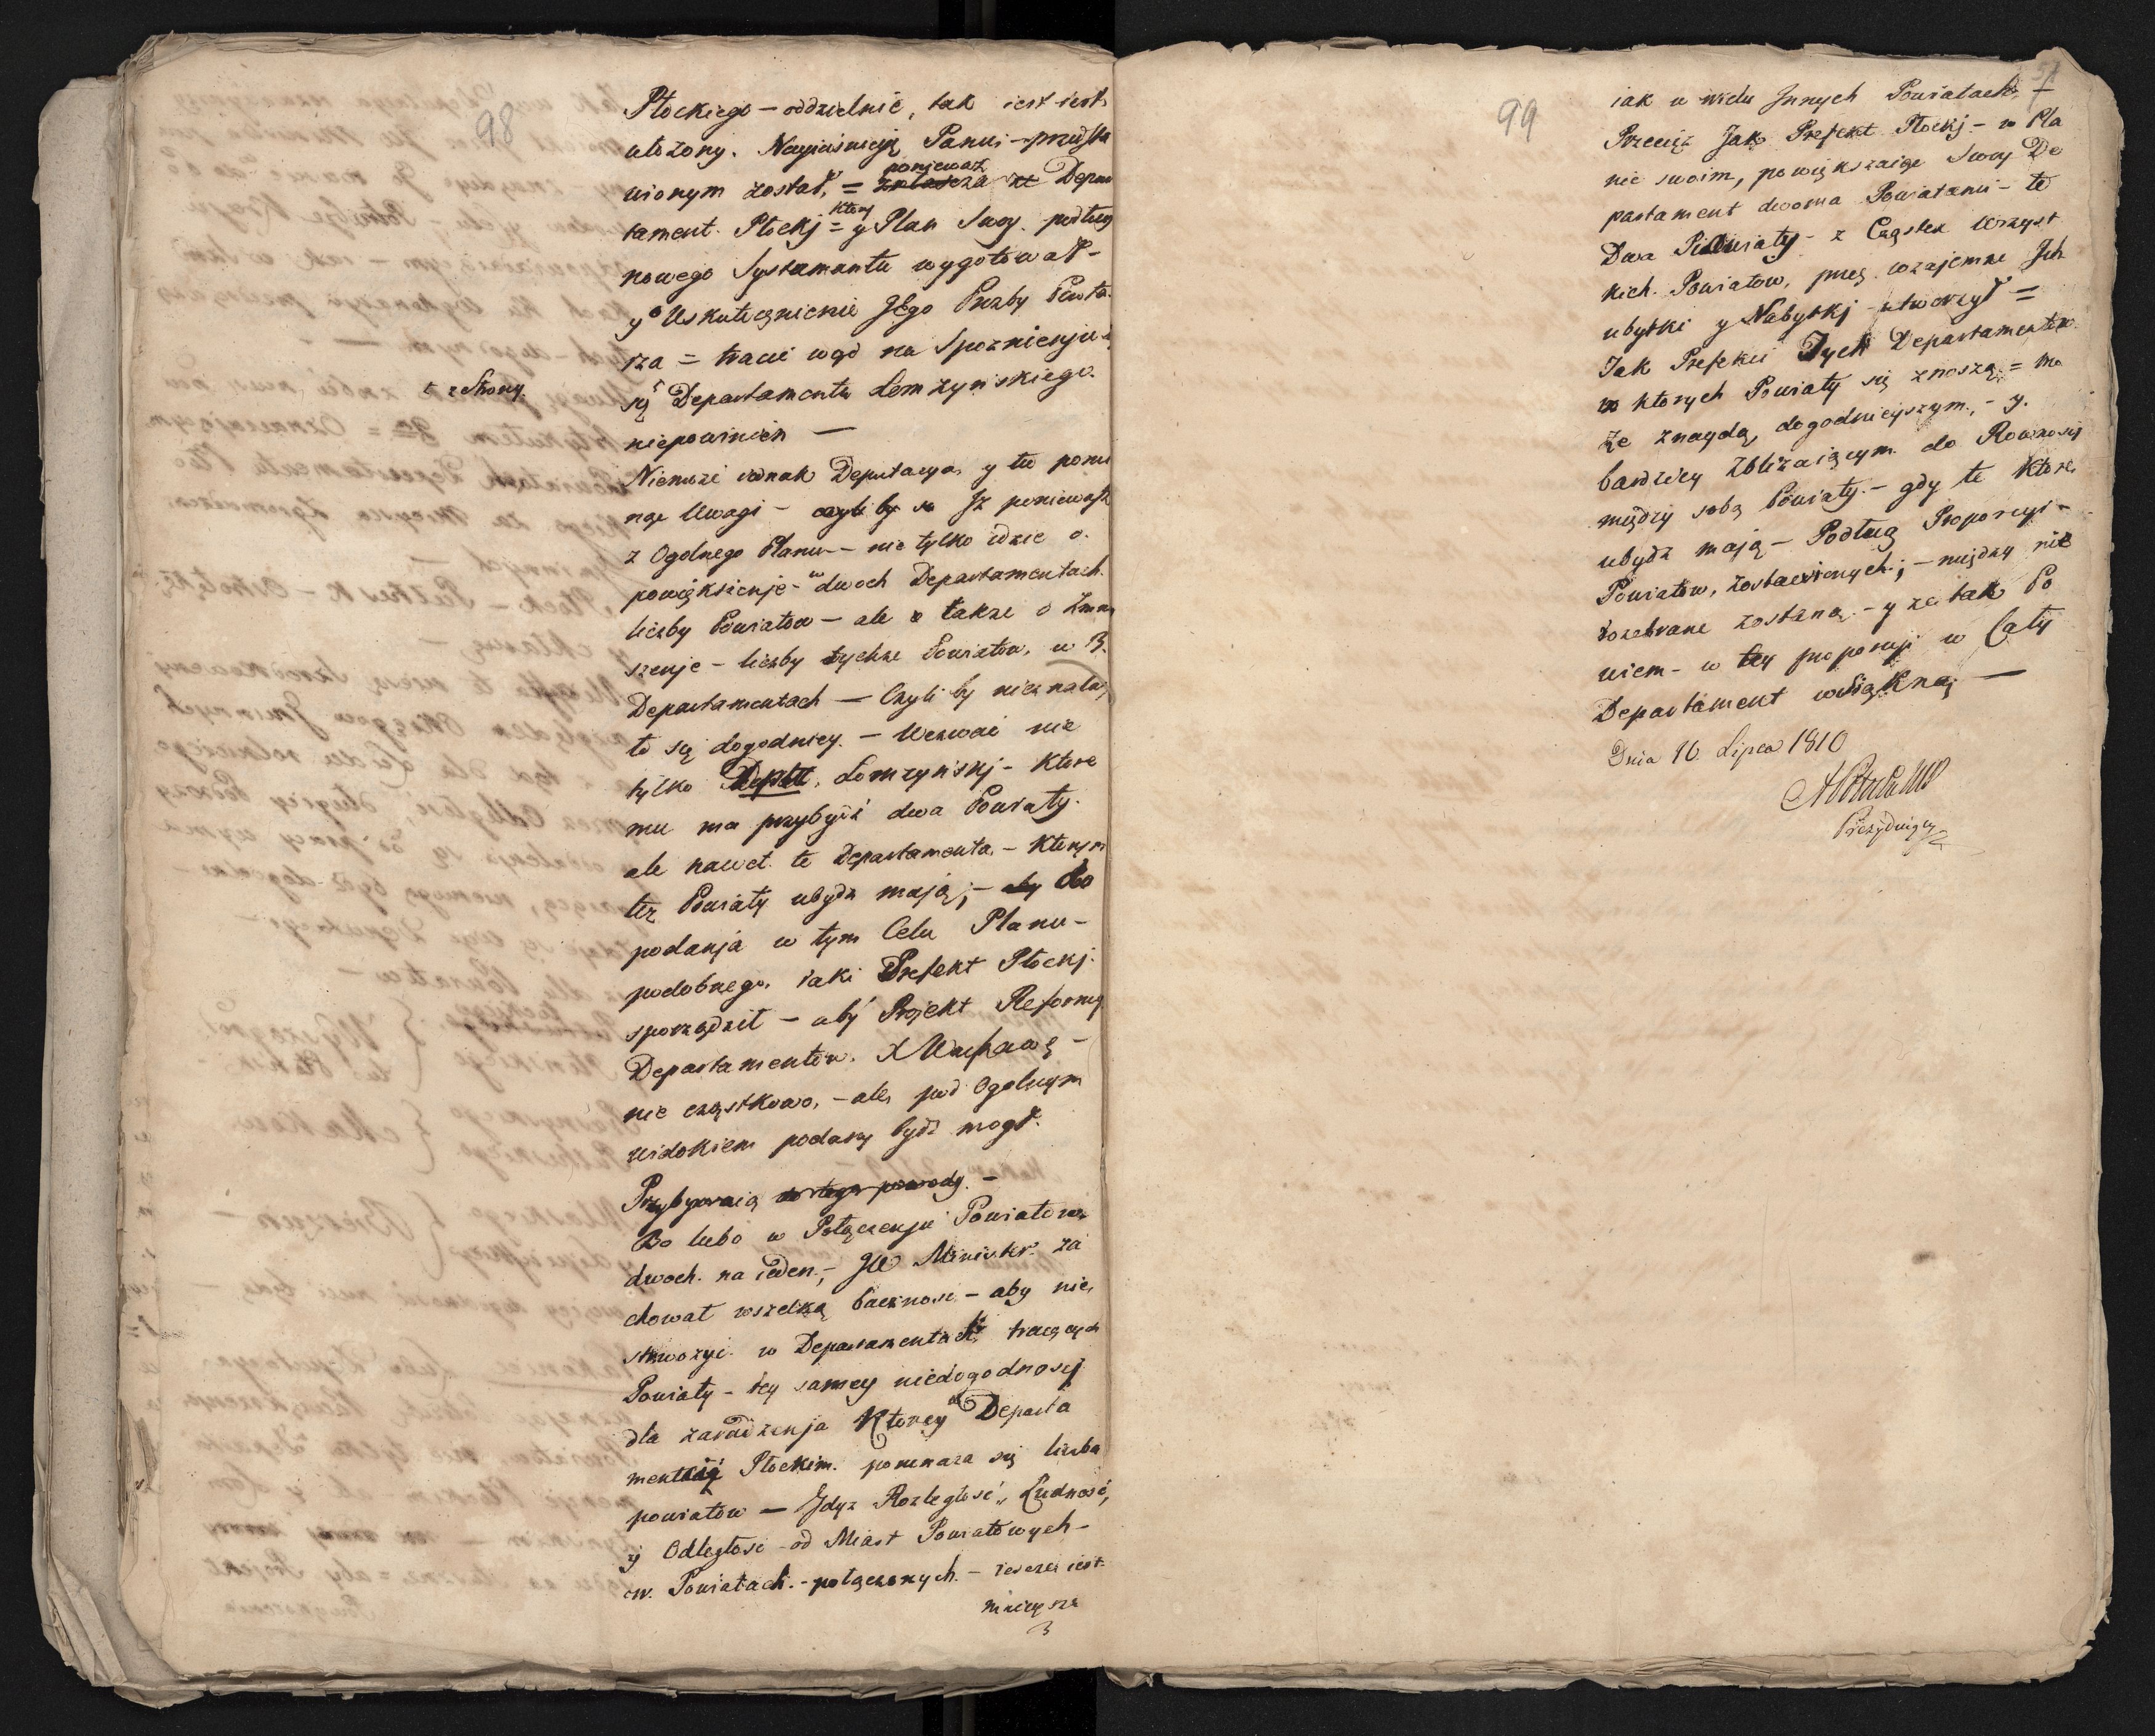 98
Płockiego – oddzielnie, tak iest iest
ułożony. Nayiaśnieyszemu Panu – przedsta
wionym został, = ponieważ Depar
tament Płockj = ktory y Plan Swoy podług
nowego Systamentu wygotował –
y Uskutecznienie Jego Liczby Powia
tracić względ na Spoznienju
się Departamentu Łomżyńskiego.
z Strony.
niepowinien —
Niemoże iednak Deputacya y tu pomi
nąć Uwagi – czyli by Iż ponieważ
z Ogolnego Planu – nie tylko idzie o
powiększenje – w dwoch Departamentach
liczby Powiatow – ale także o Zmniey
szenje – liczby tychże Powiatow, w 3.
Departamentach — Czyli by nieznalaz
ło się dogodniey. – Wezwać nie
tylko Deptt. Łomżyńskj – ktore
mu ma przybydź dwa Powiaty.
ale nawet te Departamenta – ktorym
też Powiaty ubydź mają; – do
podanja w tym Celu Planu –
podobnego, iaki Prefekt Płockj
sporządził – aby Projekt Reformy
Departamentow. X Warszawą –
nie cząstkowo, – ale pod Ogolnym
widokiem podany bydź mogł.
Przybywaią do tego powody. –
Bo lubo w Połączenju Powiatow
dwoch na ieden, – JW Minister za
chował wszelką baczność – aby nie
stworzyć w Departamentach tracących
Powiaty – tey samey niedogodnoscj
dla zaradzenja Ktorey w Departa
mentcie Płockim pomnaża się liczba
powiatow — Gdyż Rozległość, Ludność,
y Odległość od Miast Powiatowych –
w Powiatach – połączonych – ieszcze iest
mnieysza
99
51
iak w wielu Innych Powiatach, –
Przecież Jak Prefekt Płockj – w Pla
nie swoim, powiększaiąc Swoy De
partament dwoma Powiatami – te
Dwa Powiaty – z Cząstek Wszyst
kich Powiatow, przez wzajemne Ich
ubytki y Nabytkj utworzył =
Jak Prefekci Tych Departamentow
w ktorych Powiaty się znoszą = mo
że znaydą dogodnieyszym, – y.
bardziey Zbliżaiącym do Rownoscj
między sobą Powiaty – gdy te ktore
ubydź mają – Podług Proporcyi –
Powiatow, zostawionych; – między nie
rozebrane zostaną – y za tak Po
wiem – w tey proporcyi w Cały
Departament wsiąkną —
Dnia 10 Lipca 1810
Prezyduiący